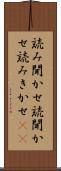 読み聞かせ読聞か
せ読みきかせ